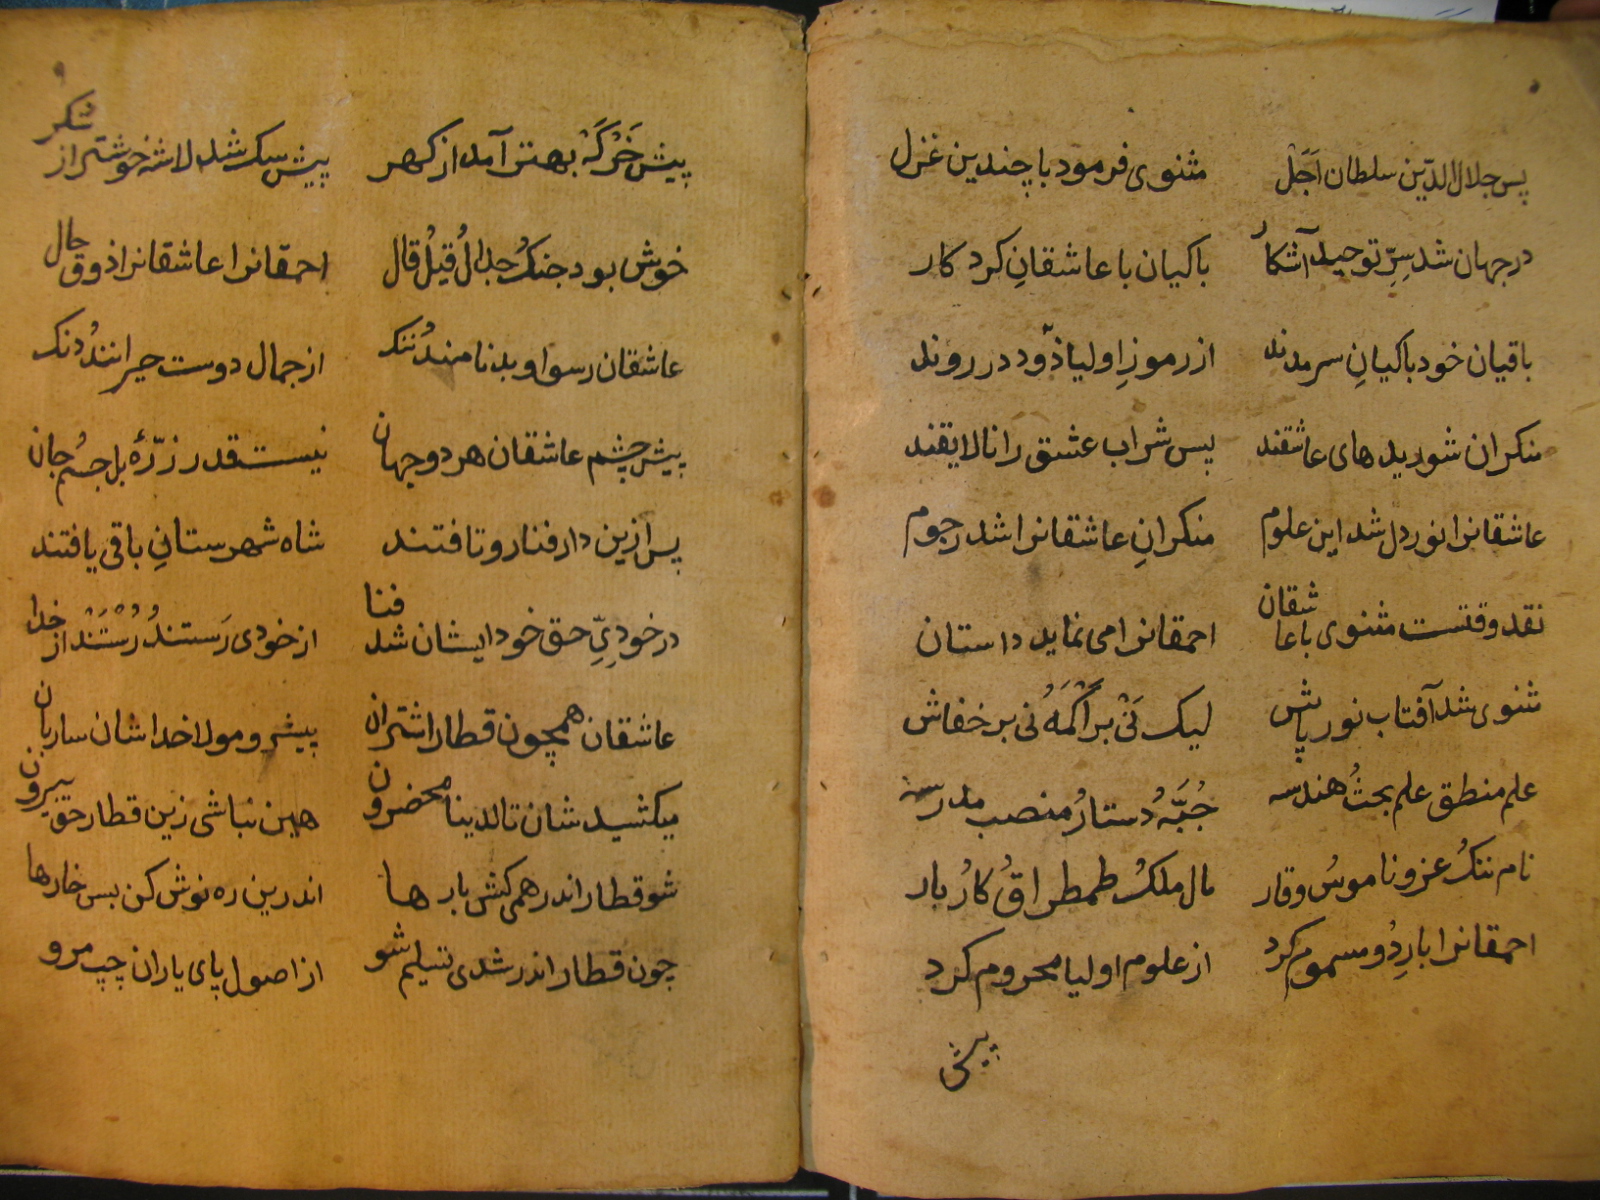 پس جلال الدّین سلطان اَجَلْ مثنوی فرمود با چندین غزل
در جهان شد سِرِّ توحید آشکار باکیان با عاشقانِ کرد کار
باقیان خود باکیانِ سرمدند از رموزِ اولیا ذَود در روند
منکران شورید های عاشقند لیس شراب عشق را نالایقند
عاشقانرا نور دل شد این علوم منکرانِ عاشقانرا شد رجوم
نقد وقتست مثنوی با عاشقان احمقانرا می نماید داستان
مثنوی شد آفتاب نور پاش لیک نَیْ بر اَکْمَهُ نی بر خفاش
علم منطق علم بحثُ هندسه جُبَّهُ دستارُ منصب مدرسه
نام ننکُ عز و ناموسُ وقار مال ملکُ طمطراقُ کارُ بار
احمقانرا باردُ و مسموم کرد از علوم اولیا محروم کرد
پیش
پیش خَرْ کَهْ بهتر آمد از کهر پیش سک شد لاشه خوشتر از شکر
خوش بود جنکُ جدالُ قیلُ قال احمقانرا عاشقانرا ذوق حال
عاشقان رسوا و بدنامندُ ننک از جمال دوست حیرانندُ دنک
پیش چشم عاشقان هر دو جهان نیست قدر ذرّهٔ بل جسمُ جان
پس ازین دار فنا رو تافتند شاه شهرستانِ باقی یافتند
در خودیِّ حق خود ایشان شد فنا از خودی رَستندُ رُسْتَنْد از خدا
عاشقان همچون قطار اشتران پیشرو مولا خداشان ساربان
میکشید شان تا لدینا محضرون هین نباشی زین قطار حق بیرون
شو قطار اندر همی کش بار ها اندرین ره نوش کن بس خارها
چون قطار اندر شدی تسلیم شو از اصول پای یاران چپ مرو